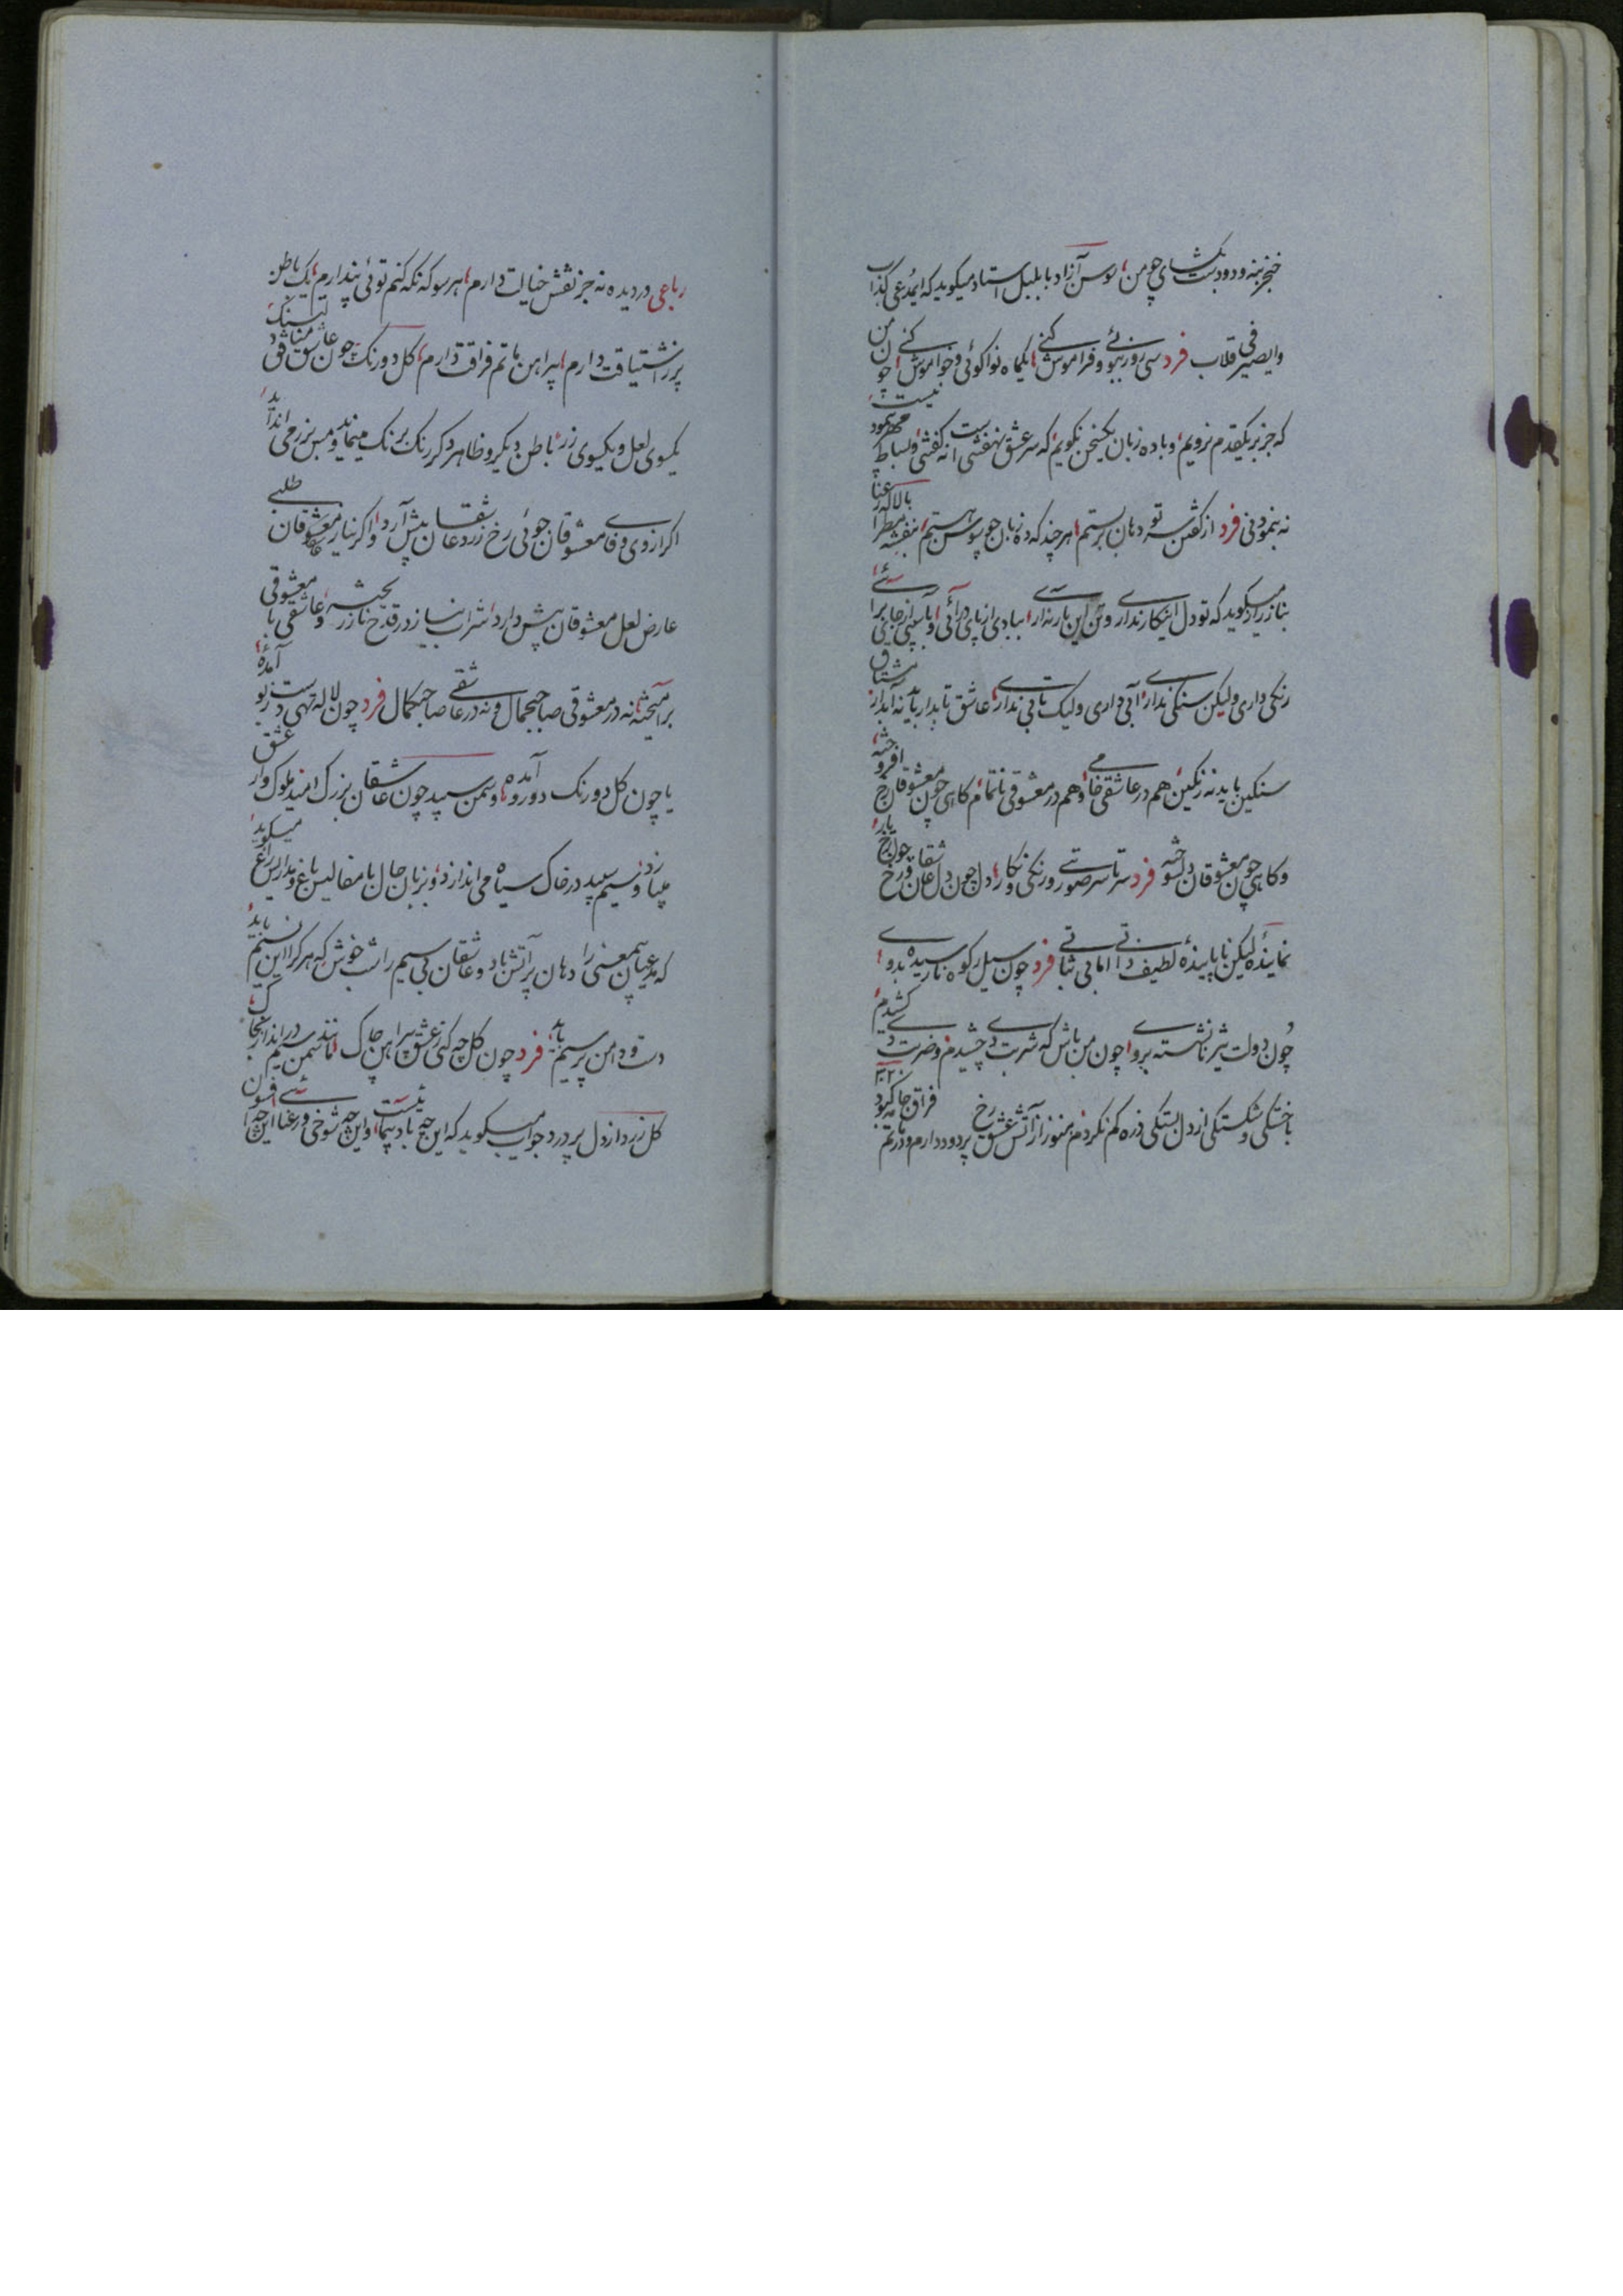 خنجر بنه و دو دست بگشای چو من، سوسن آزاد با بلبل استاد میگوید که ایمدعی کذاب
وایصیرفی قلاب فرد سی روز بوی و فراموش کنی، یکماه نواگوئی و خواموش کنی چون من
که جز بر یکقدم نرویم، و با ده زبان یکسخن نگویم، که سر عشق نهفتنی است نه گفتنی، و بساط مهر پیمودنیست
نه نمودنی فرد از گفتن سر تو دهان بربستم، هرچند که ده زبان چو سوسن هستم، بنفشه مطرا بالاله رعنا
براز میگوید که تو دل اینکار نداری و تن این بار نداری، ببادی از پای درآئی و بآبی از جای برآئی
رنگی داری ولیکن سنگی نداری، آبی داری ولیک تابی نداری، عاشق تابدار باید نه آبدار، مشتاق
سنگین باید نه رنگین، هم در عاشقی خامی و هم در معشوقی ناتمام، گاهی چون معشوقان رخ افروخته
و گاهی چون معشوقان دل سوخته فرد سرتاسر صورتی و رنگی و نگار، دل چون دل عاشقان و رخ چون رخ یار،
نماینده لیکن ناپاینده لطیف ذاتی اما بی ثباتی فرد چون سیل ز کوه نارسیده بدوی،
چون دولت تیز نانشسته بروی، چون من باش که شربت دی چشیدم و ضربت دی کشیدم،
با خستگی و شکستگی از دلبستگی ذره کم نکردم، هنوز از آتش عشق رخ پر دود دارم و در ماتم فراق جامه کبود
رباعی در دیده نه جز نقش خیالت دارم، هر سو که نگه کنم توئی پندارم، یک باطن
پر ز اشتیاقت دارم، پیراهن ماتم فراقت دارم، گل دورنگ چون عاشق منافق
یکسوی لعل و یکسوی زر، باطن دیگر و ظاهر دگر رنگ بر نگ میماند و مس بزر می انداید
اگر از وی وفای معشوقان جوئی رخ زرد عاشقان پیش آرد، و اگر نیاز عاشقان طلبی
عارض لعل معشوقان پیش دارد، شراب نیاز در قدح ناز ریخته، و عاشقی با معشوقی
برآمیخته، نه در معشوقی صاحبجمال و نه در عاشقی صاحبکمال فرد چون لاله تهی دست ز بو آمده
یا چون گل دورنگ دورو آمده، و سمن سپید چون عاشقان بزرگ امید ملوک وار
میبازد و سیم سپید در خاک سیاه می اندازد، و بزبان حال با مفالیس باغ و مدارس راغ میگوید
که مدعیان بیمعنی را دهان پر آتش باد و عاشقان بی سیم را شب خوش که هر کرا این نسیم باید
دست و دامن پر سیم باید، فرد چون گل چه کنی ز عشق پیراهن چاک، مانند سمن سیم در انداز بخاک
گل زرد از دل پر درد جواب میگوید که این چه باد پیمائیست، و این چه شوخی و رعنائی این چه افسون